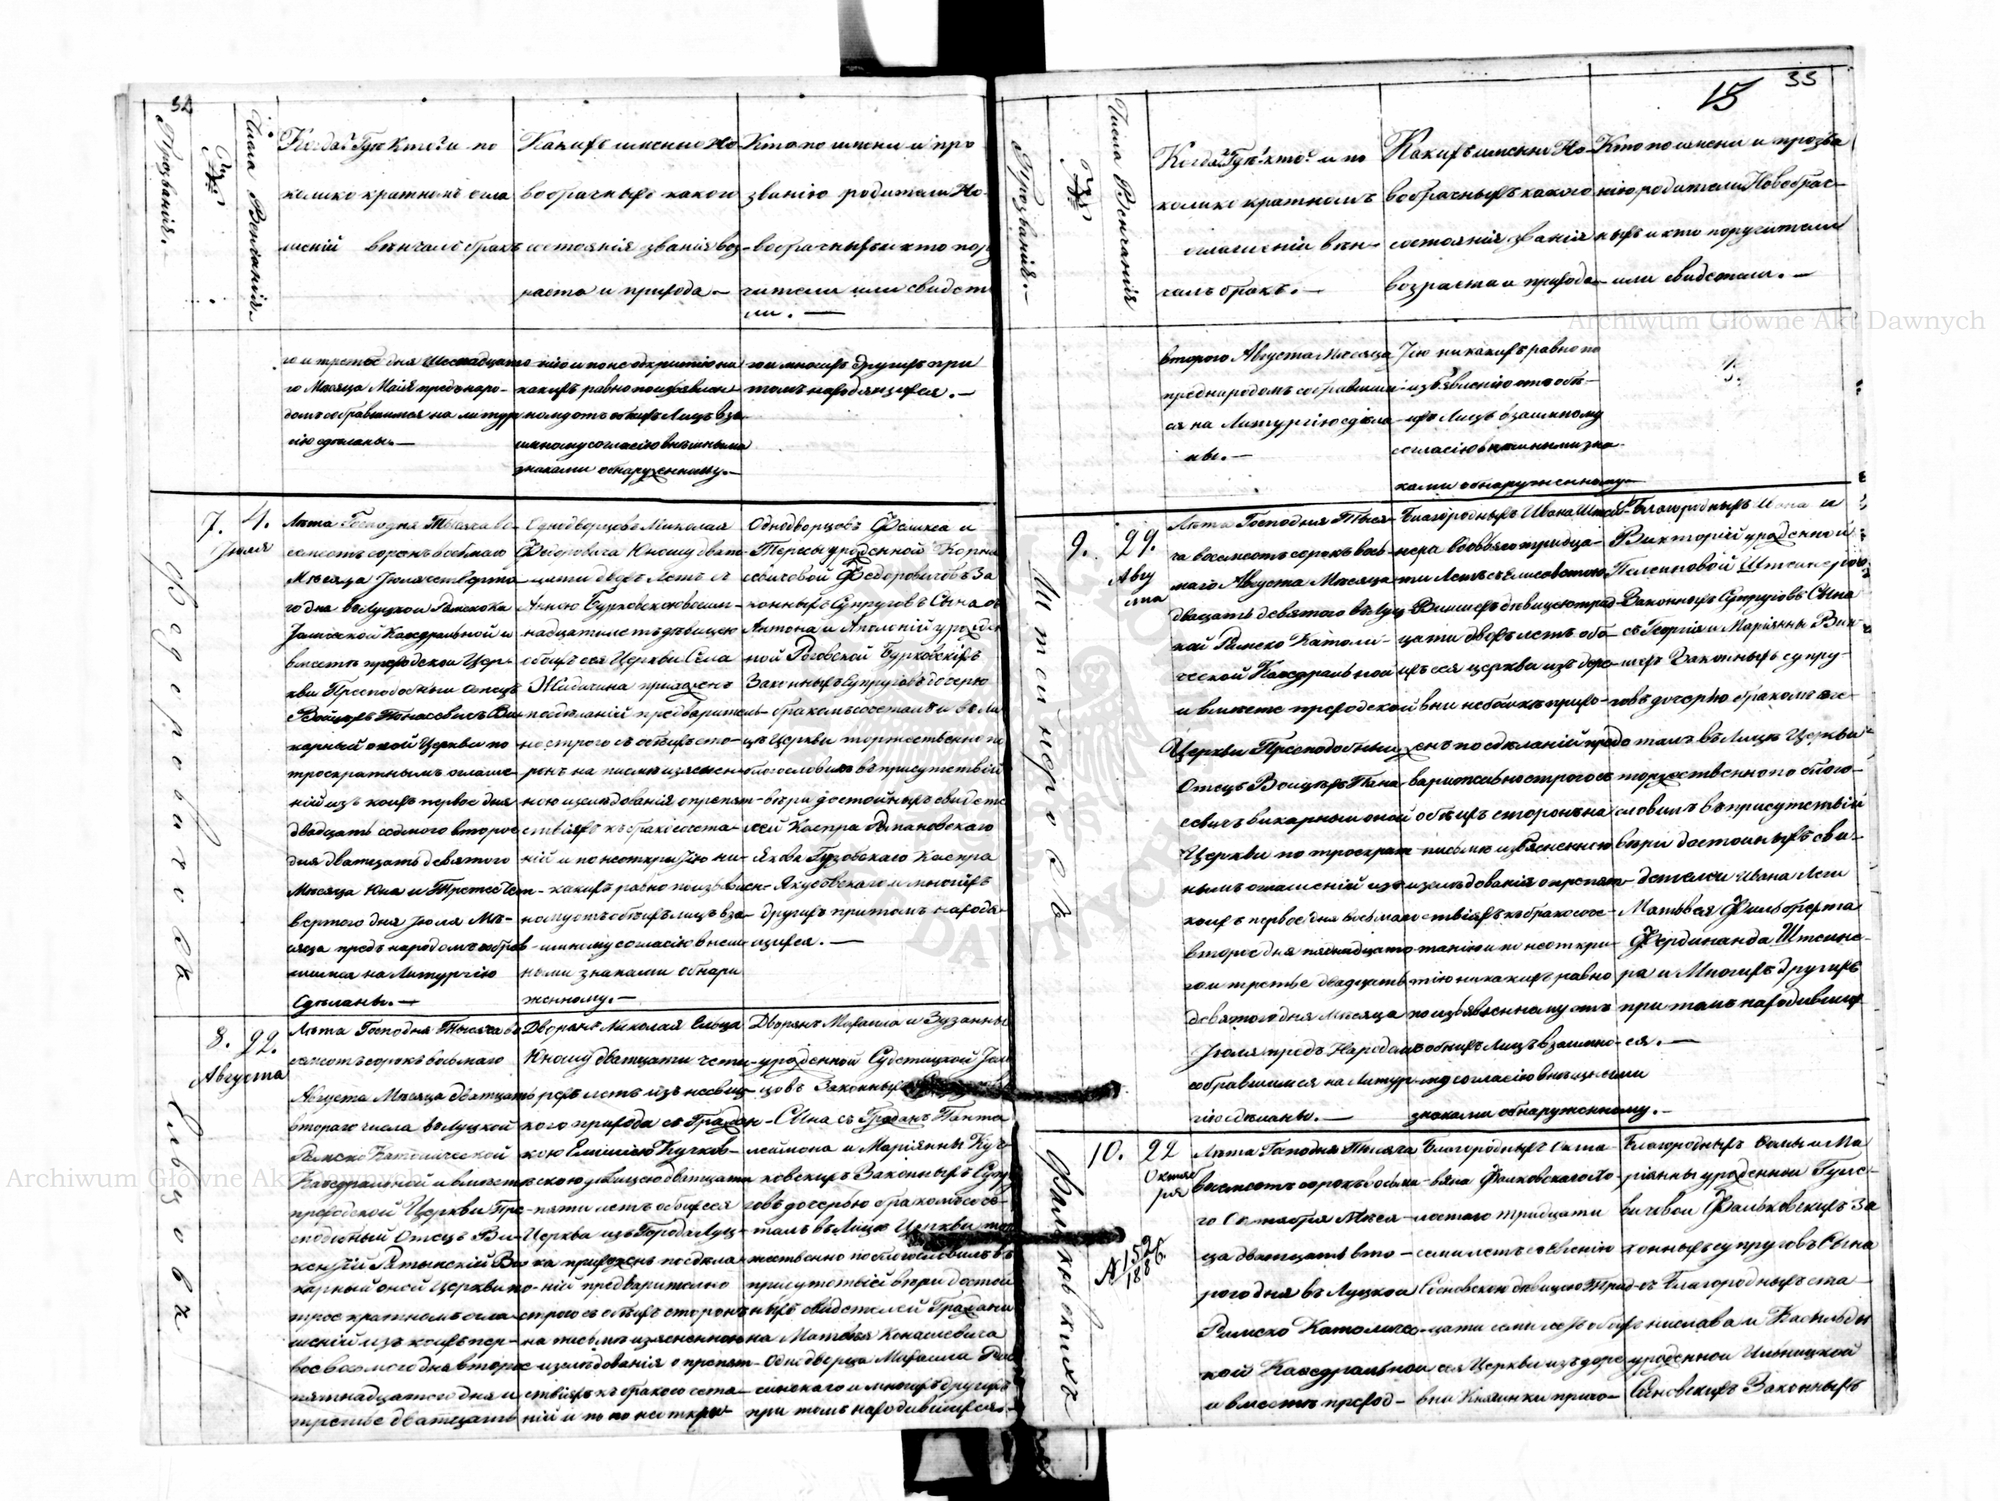 32
Прозванія.
Числа Венчанія.
Когда? Гдѣ? Кто? и по
колико кратномъ огла
шеній вѣнчалъ бракъ
Какихъ именно Но
вобрачныхъ какого
состоянія званія воз
раста и прихода. —
Кто по имени и про
званію родители Но-
вобрачныхъ и кто пору
чители или свидѣте
ли. —
го и третье дня Шестнадцата
го Месяца Маія предъ наро-
домъ собравшимся на литур
гію сдѣланы. —
тію и по не открытію ни
какихъ равно по изъявлен
ному отъ обѣихъ Лицъ вза
имному согласію внѣшными
знаками обнаруженному. —
го и многихъ другихъ при
томъ народящихся. —
7.
4.
Іюля
Федоровичъ
Лѣта Господня Тысяча во
семсотъ сорокъ восьмаго
Мѣсяца Іюля четверта
го дня въ Луцкой Римско Ка
толической Кафедральной и
вмѣстѣ приходской Цер-
кви Преподобный Отецъ
Войцехъ Банасевичъ Ви
карный оной Церкви по
троекратнымъ оглаше
ній изъ коихъ первое дня
двадцать седмого второе
дня двадцать девятого
Месяца Юня и Третее Чет
вертого дня Іюля Мѣ-
сяца предъ народомъ собрав
шимся на Литургію
Сдѣланы. —
Однодворцовъ Миколая
Федоровича Юношу двад
цати двохъ Летъ съ
Анною Бурковскою восем-
надцатилетъ дѣвицею
обоихъ сея Церкви Села
Жидичина прихоженъ
по сдѣланій предваритель-
но строго съ обѣихъ сто-
ронъ на письмѣ изъяснен-
ного изслѣдованія о препят-
ствіяхъ къ бракосочета-
ній и по неоткритію ни-
какихъ равно по изъявлен-
ному отъ обѣихъ лицъ вза-
имному согласію внеш
ными знаками обнару
женному. —
Однодворцовъ Феликса и
Терезы урожденной Корни
севичовой Федоровичовъ За
конныхъ Супруговъ Сына съ
Антона и Аполоній урожден
ной Роговской Бурковскихъ
Законныхъ Супруговъ дочерю
бракомъ сочеталъ и въ Ли
цѣ Церкви торжественно по
благословилъ въ присутствій
вѣри достойныхъ свидете
лей Каспра Романовскаго
Якова Гузовскаго Каспра
Якубовскаго и многихъ
другихъ притомъ народя-
щихся. —
8.
22.
Августа
Ельцовъ
Лѣта Господня Тысяча во
семсотъ сорокъ восьмаго
Августа Мѣсяца двадцать
втораго числа въ Луцкой
Римско Католической
Кафедральной и вместѣ
приходской Церкви Пре
подобный Отецъ Ви
кентій Ратынскій Ви
карный оной Церкви по
троекратномъ огла
шеній изъ коихъ пер-
вое восьмого дня второе
пятнадцатого дня и
третье двадцать
Дворянъ Николая Ельца
Юношу двадцати чети-
рехъ летъ изъ несвиц
кого прихода съ Граждан
кою Емилією Кучков-
скою дѣвицею двадцати
пяти летъ обоихъ сея
Церкви изъ Города Луц-
ка прихоженъ по сдѣла
ній предварительно
строго съ обѣихъ сторонъ
на письмѣ изъясненного
изслѣдованія о препят
ствіяхъ къ бракосочета-
ній и по не откры
Дворянъ Михаила и Зузанны
урожденной Судетицкой Ель
цовъ Законныхъ
Сына съ Гражданъ Панта
леймона и Маріянны Куч-
ковскихъ Законныхъ Супру
говъ дочерью бракомъ соче
талъ въ Лице Церкви тор
жественно поблагословилъ въ
присутствій вѣри достой
ныхъ свидетелей Граждани
на Матвѣя Конашевича
Однодворца Михаила Рос
синского и многихъ другихъ
при томъ народившихся. —
33
15
Прозванія. —
Числа Венчанія
Когда? Гдѣ? кто? и по
колико кратномъ
оглашеніи вѣн-
чалъ бракъ. —
Какихъ именно Но
вобрачныхъ какого
состоянія званія
возраста и прихода
Кто по имени и прозва
нію родители Новобрач-
ныхъ и кто поручители
или свидетели. —
второго Августа Месяца
предъ народомъ собравшим
ся на Литургію сдѣла
ны. —
тію никакихъ равно по
изъявленію отъ обѣ-
ихъ Лицъ взаимному
согласію внешными зна
ками обнаруженному —
9.
29.
Авгу
ста
Штейнеровъ
Лѣта Господня Тыся-
ча восемсотъ сорокъ вось-
маго Августа Месяца
двадцать девятого въ Луц
кой Римско Католи-
ческой Кафедральной
и вместе приходской
Церкви Преподобный
Отецъ Войцехъ Бана
севичъ викарный оной
Церкви по троекрат
нымъ оглашеній изъ
коихъ первое дня восьмаго
второе дня пятнадцато
го и третье двадцать
девятого дня Месяца
Іюля предъ Народомъ
собравшимся на Литур
гію сдѣланы. —
Благородныхъ Ивана Штей
нера вдовьяго тридца-
ти Летъ съ Елисаветою
Винцеръ дѣвицею трид
цати двохъ летъ обо
ихъ сея церкви изъ дере
вни небожка прихо-
женъ по сдѣланій пред
варительно строго съ
обѣихъ сторонъ на
письмѣ изъясненного
изслѣдованія о препят
ствіяхъ къ бракосоче-
танію и по не откри-
тію никакихъ равно
по изъявленному отъ
обѣихъ Лицъ взаимно-
му согласію внешными
знаками обнаруженному. —
Благородныхъ Ивана и
Викторій урожденной
Пелсиповой Штейнеровъ
Законныхъ Супруговъ Сына
съ Георгія и Маріянны Вин
церъ Законныхъ супру-
говъ дочерью бракомъ соче
талъ въ Лицѣ Церкви
торжественно по благо-
словилъ въ присутствій
вѣри достойныхъ сви-
детелей Ивана Леги
Матвѣя Фильберта
Фердинанда Штейне-
ра и Многихъ другихъ
при томъ народивших
ся. —
10.
22
Октяб
ря
№ 152/1886.
Фальковскихъ
Лѣта Господня Тысяча
восемсотъ сорокъ восьма
го Октября Мѣся-
ца двадцать вто-
рого дня въ Луцкой
Римско Католичес-
кой Кафедральной
и вместѣ приход-
Благородныхъ
Фалковскаго Хо-
лостаго тридцати
семи летъ съ
Сѣновскою дѣвицею Трид-
цати семи летъ обоихъ
сея Церкви изъ дере
вни Княгинки прихо-
Благородныхъ Фомы и Ма
ріянны урожденной Гуле-
вичовой Фальковскихъ За
конныхъ супруговъ Сына
съ Благородныхъ Ста-
нислава и Касильды
урожденной Ильницкой
Сѣновскихъ Законныхъ
Archiwum Główne Akt Dawnych
Archiwum Główne Akt Dawnych